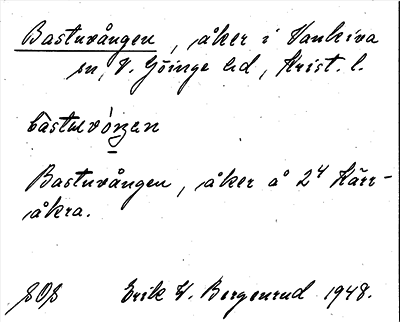 Bastuvången, åker i Vankiva
sn, V. Göinge hd, Krist. l.
bàstuvóŋen
Bastuvången, åker å 2⁴ Kärr-
åkra.
SOS Erik W. Bergenrud 1948.